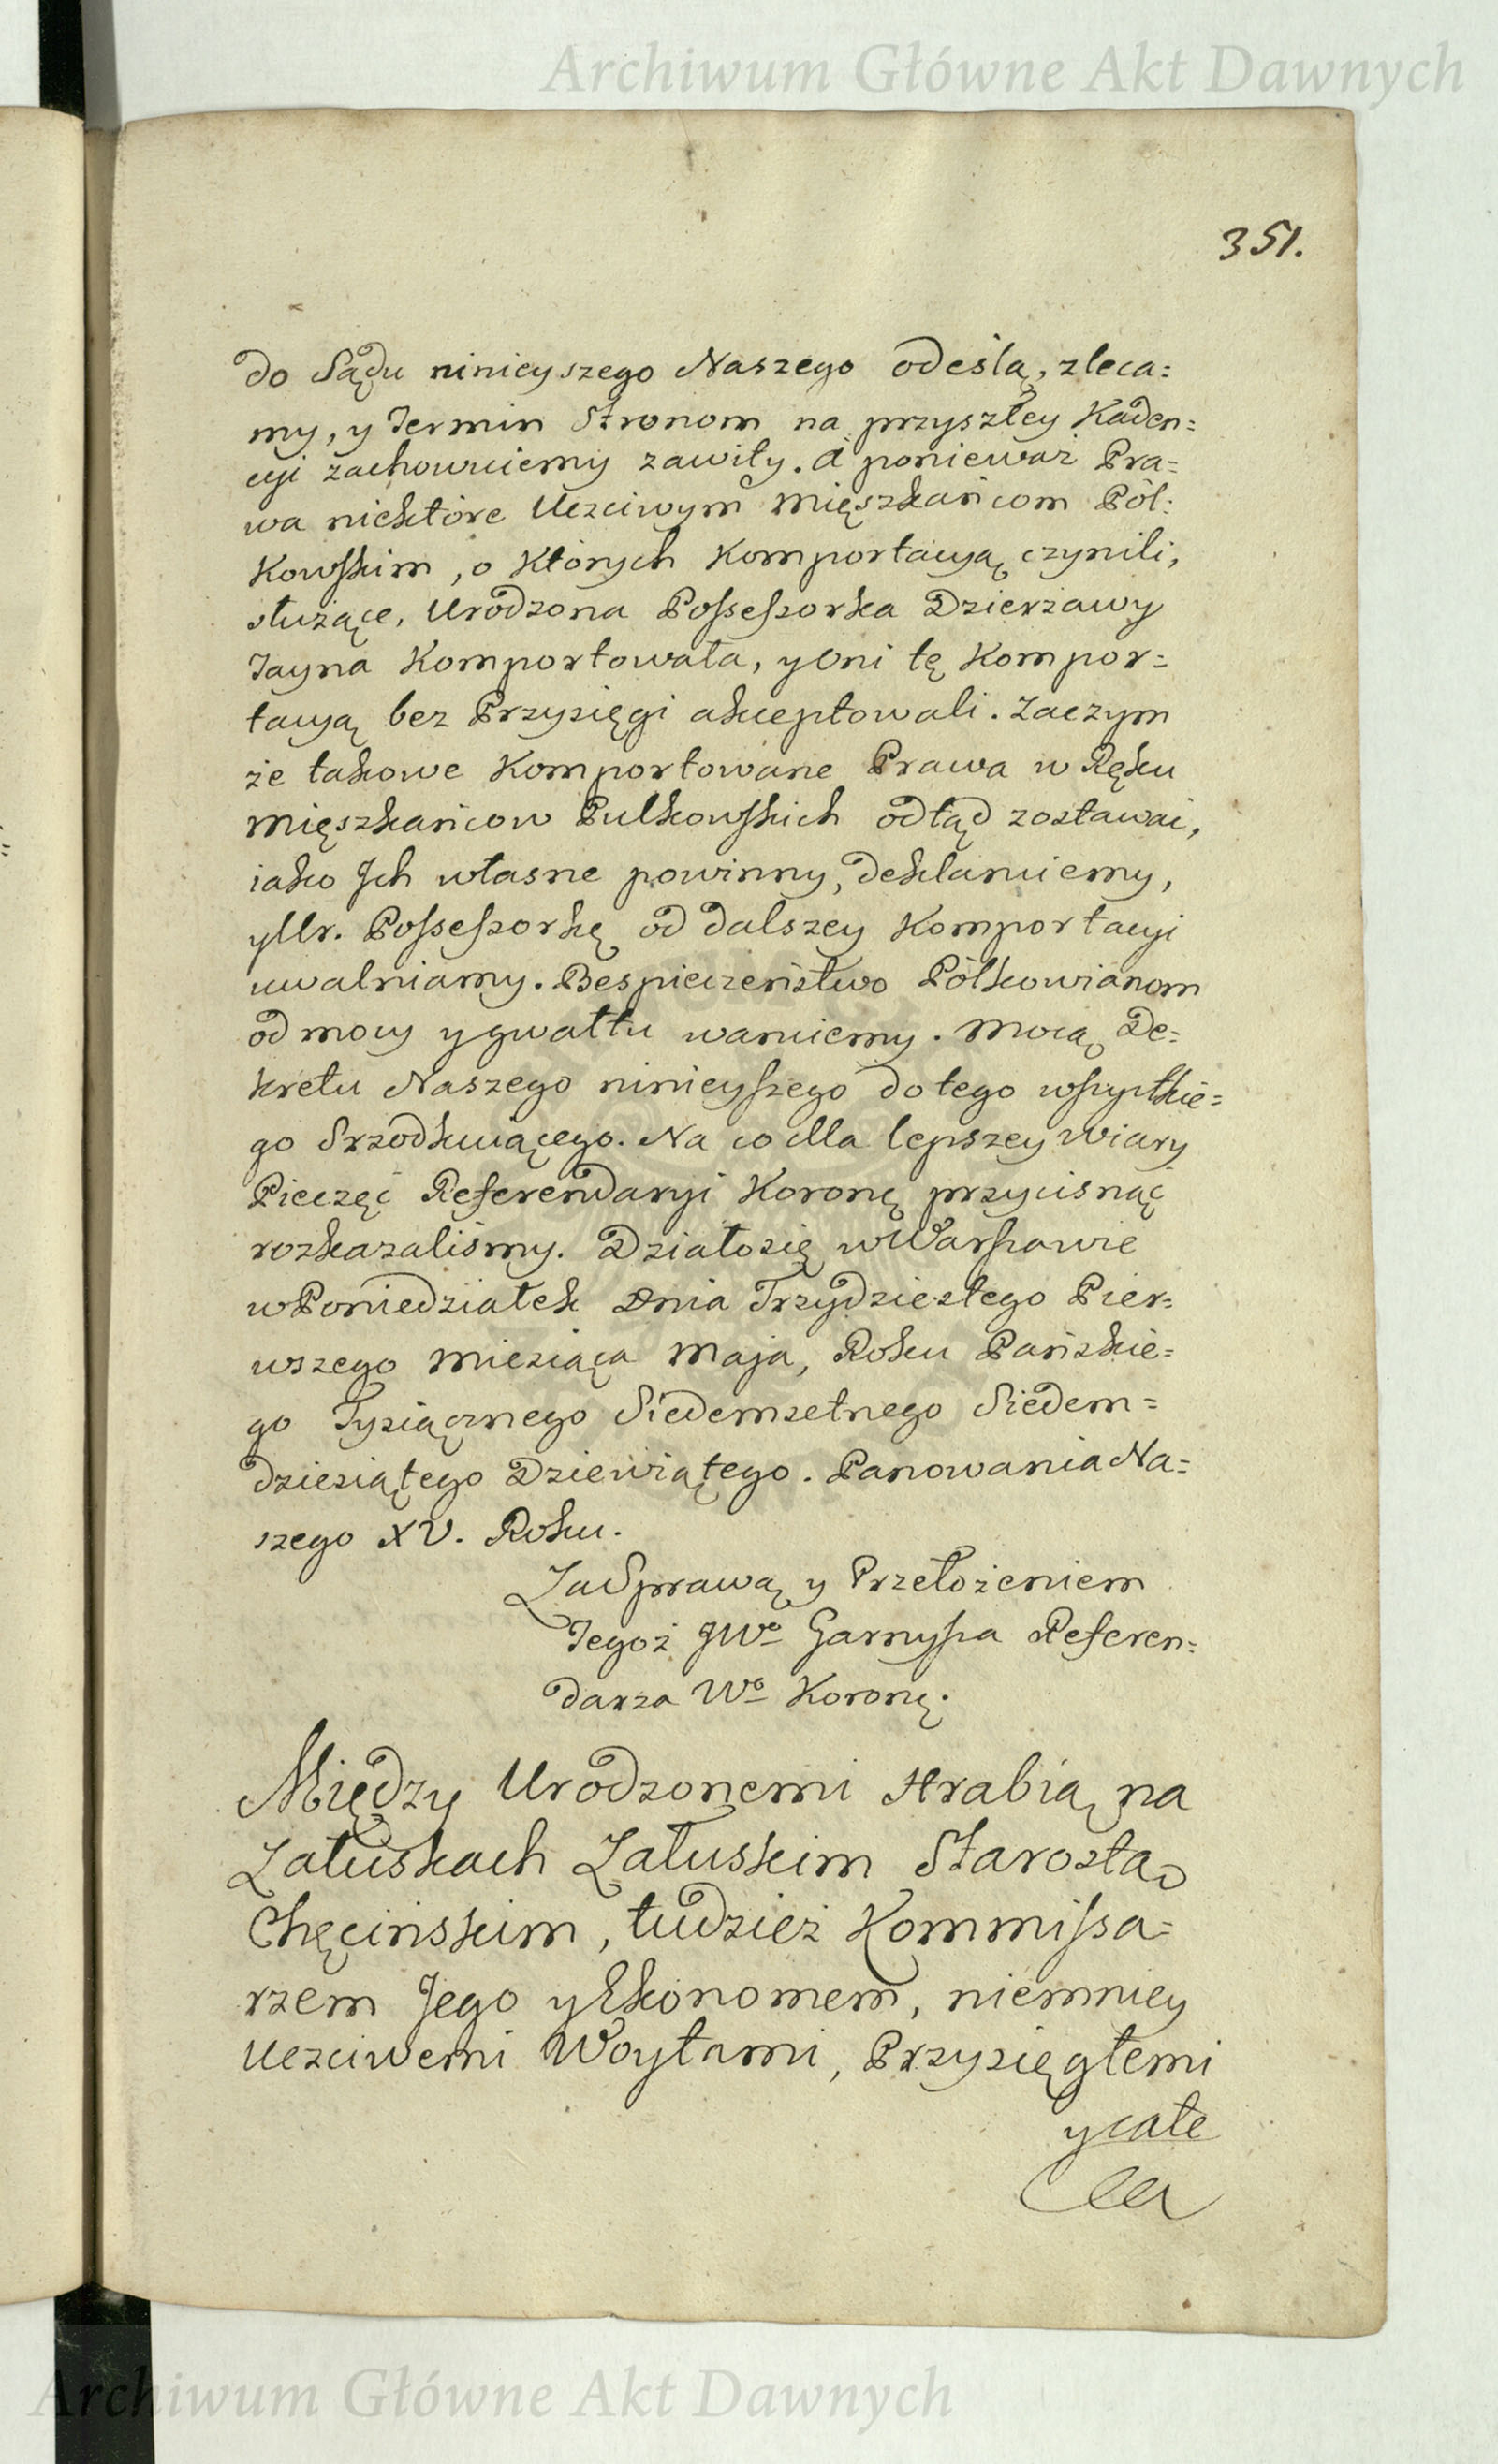 Archiwum Główne Akt Dawnych
351.
do Sądu ninieyszego Naszego odeślą, zleca=
my, y Termin Stronom na przyszłey Kaden=
cyi zachowuiemy zawity. A ponieważ Pra=
wa niektóre Uczciwym Mięszkańcom Pól:
kowskim, o których Komportacyą czynili,
służące, Urodzona Possessorka Dzierżawy
Jayna Komportowała, y Oni tę Kompor=
tacyą bez Przysięgi akceptowali. Zaczym
że takowe Komportowane Prawa w Ręku
Mięszkańcow Pulkowskich odtąd zostawać,
iako Ich własne powinny, deklaruiemy,
y Ur. Possessorkę od dalszey Komportacyi
uwalniamy. Bespieczeństwo Pólkowianom
od mocy y gwałtu waruiemy. Mocą De=
kretu Naszego ninieyszego do tego wszytkie=
go Srzodkuiącego. Na co dla lepszey Wiary
Pieczęć Referendaryi Koronę przycisnąć
rozkazaliśmy. Działo się w Warszawie
w Poniedziałek Dnia Trzydziestego Pier=
wszego Miesiąca Maja, Roku Pańskie=
go Tysiącznego Siedemsetnego Siedem=
dziesiątego Dziewiątego. Panowania Na=
szego XV. Roku.
Za Sprawą y Przełożeniem
Tegoż JWo Garnysza Referen=
darza Wo Koronę.
Między Urodzonemi Hrabią na
Załuskach Załuskim Starostą
Chęcińskim, tudzież Kommissa=
rzem Jego y Ekonomem, niemniey
Uczciwemi Woytami, Przysięgłemi
y całe
Archiwum Główne Akt Dawnych